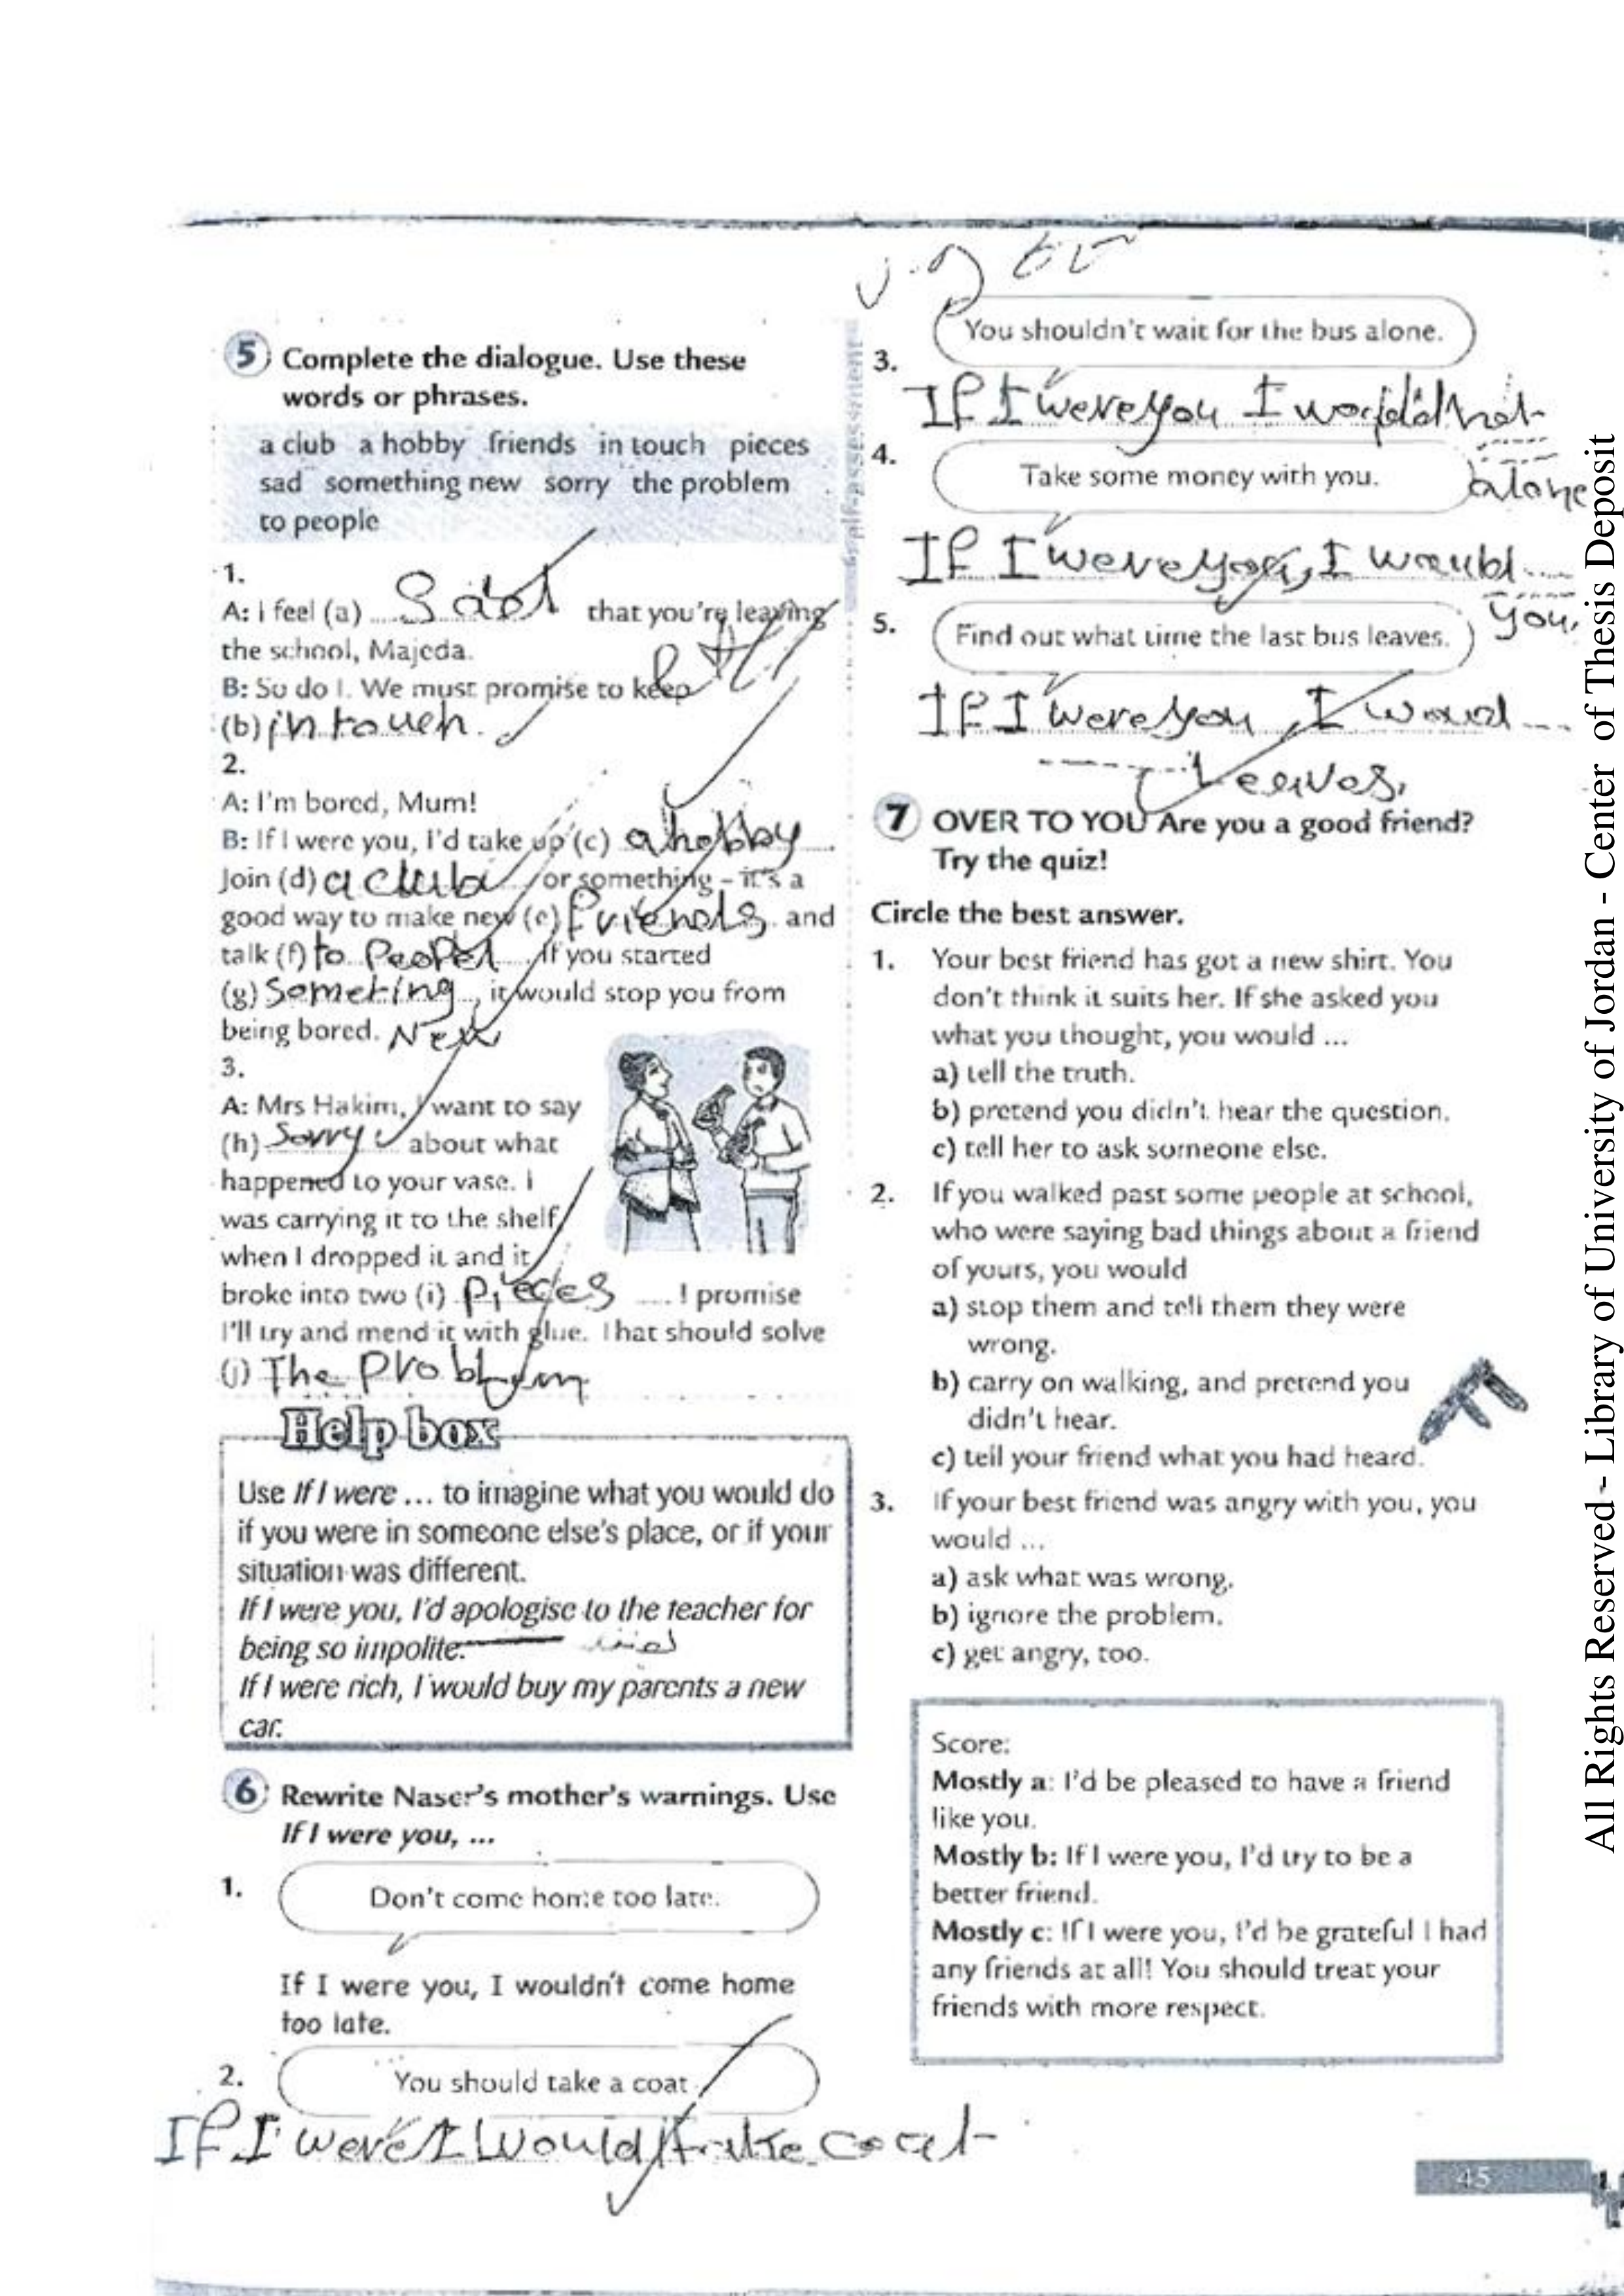 5 Complete the dialogue. Use these
words or phrases.
a club a hobby friends in touch pieces
sad something new sorry the problem
to people
1.
A: I feel (a) Sad that you're leaving
the school, Majeda.
B: So do I. We must promise to keep
(b) in touch.
2.
A: I'm bored, Mum!
B: If I were you, I'd take up (c) a hobby
Join (d) a club or something – it's a
good way to make new (e) friends and
talk (f) to . If you started
(g) Someting , it would stop you from
being bored. New
3.
A: Mrs Hakim, I want to say
(h) Sorry about what
happened to your vase. I
was carrying it to the shelf
when I dropped it and it
broke into two (i) pieces .... I promise
I'll try and mend it with glue. That should solve
(j) The Problem
Help box
Use If I were ... to imagine what you would do
if you were in someone else's place, or if your
situation was different.
If I were you, I'd apologise to the teacher for
being so impolite.
If I were rich, I would buy my parents a new
car.
6 Rewrite Naser's mother's warnings. Use
If I were you, ...
1.
Don't come home too late.
If I were you, I wouldn't come home
too late.
2.
You should take a coat
If I were I would take coat
self-assessment
You shouldn't wait for the bus alone.
3.
If I were you I not
alone
4.
Take some money with you.
If I were you, I would ....
you.
5.
Find out what time the last bus leaves.
If I were you, I ....
Leaves.
7 OVER TO YOU Are you a good friend?
Try the quiz!
Circle the best answer.
1. Your best friend has got a new shirt. You
don't think it suits her. If she asked you
what you thought, you would ...
a) tell the truth.
b) pretend you didn't hear the question.
c) tell her to ask someone else.
2. If you walked past some people at school,
who were saying bad things about a friend
of yours, you would
a) stop them and tell them they were
wrong.
b) carry on walking, and pretend you
didn't hear.
c) tell your friend what you had heard.
3. If your best friend was angry with you, you
would ...
a) ask what was wrong.
b) ignore the problem.
c) get angry, too.
Score:
Mostly a: I'd be pleased to have a friend
like you.
Mostly b: If I were you, I'd try to be a
better friend.
Mostly c: If I were you, I'd be grateful I had
any friends at all! You should treat your
friends with more respect.
45
All Rights Reserved - Library of University of Jordan - Center of Thesis Deposit